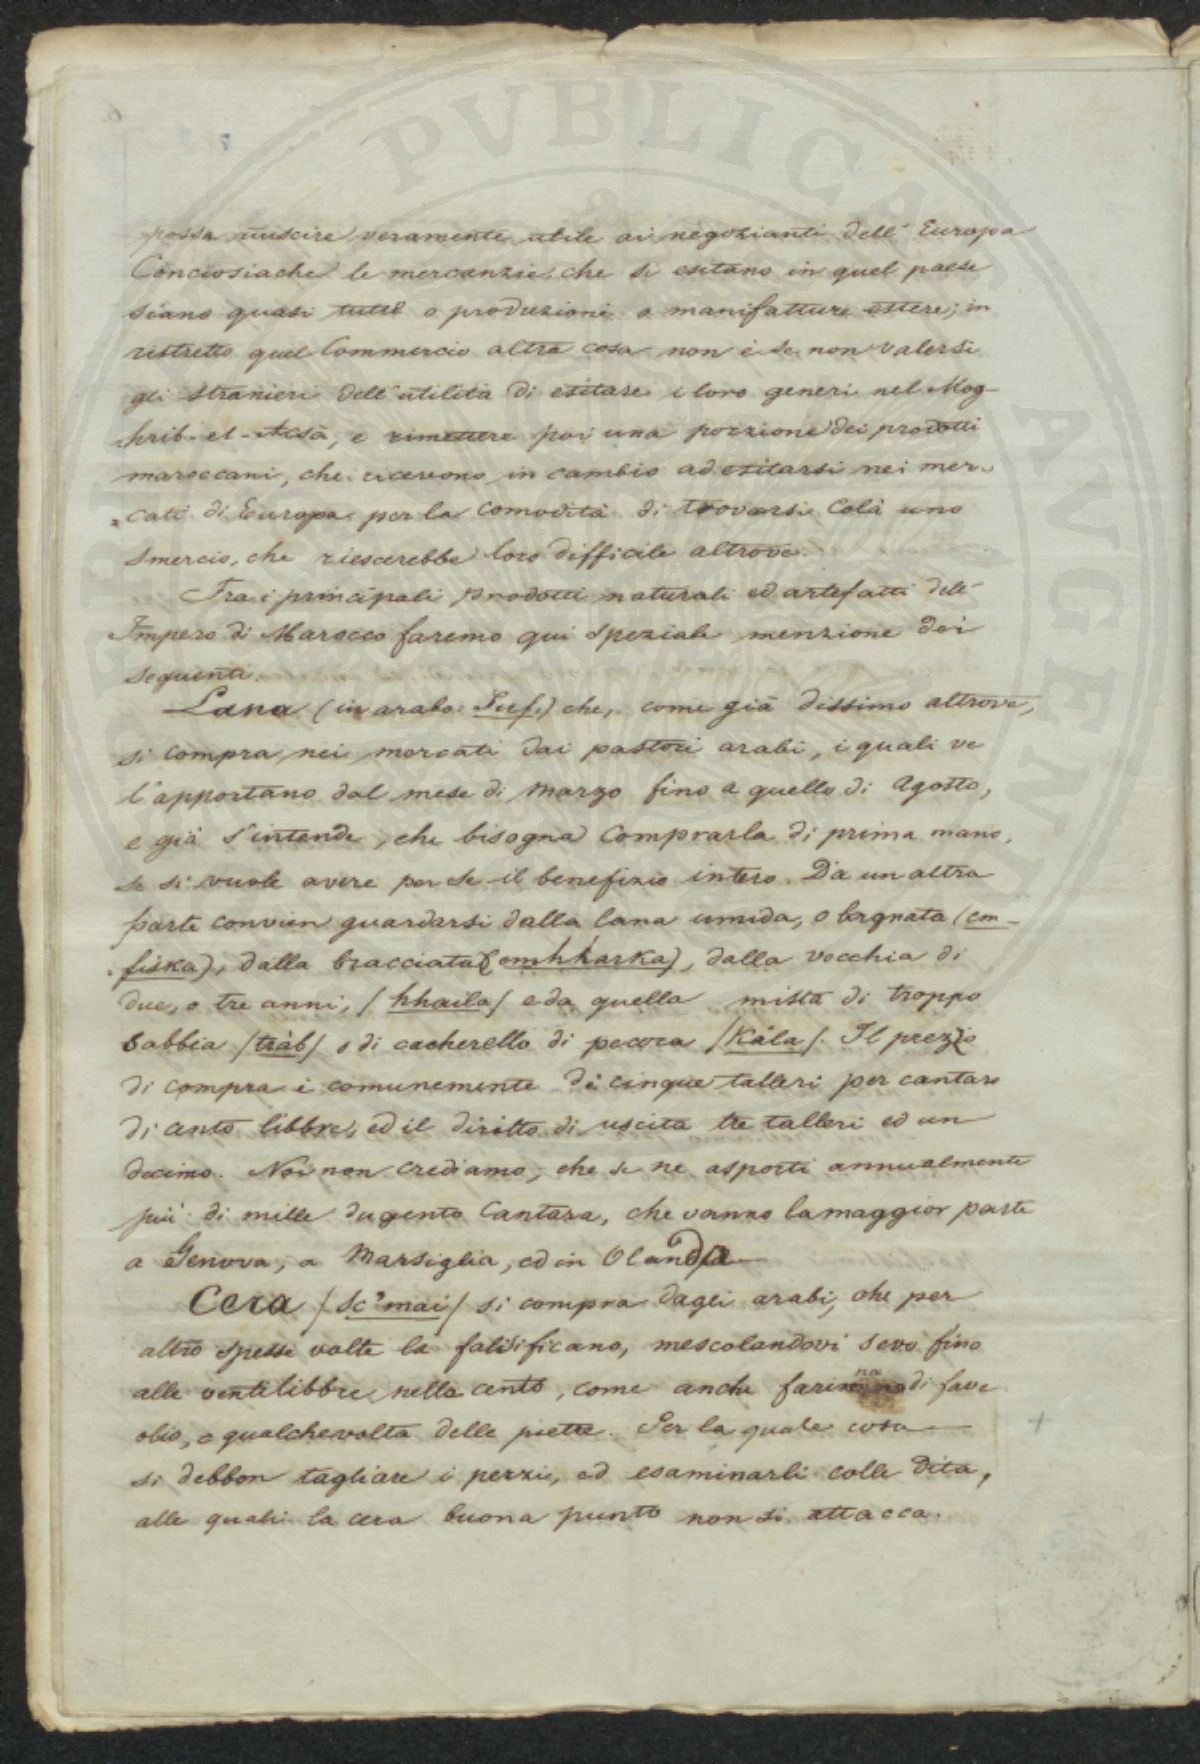 possa riuscire veramente utile ai negozianti dell' Europa
Conciosiache le mercanzie, che si esitano in quel paese
siano quasi tutte o produzioni o manifatture estere; in
ristretto quel Commercio altra cosa non è se non valersi
gli stranieri dell' utilità di esitare i loro generi nel Mog-
hrib-el-Acsà, e rimettere poi una porzione dei prodotti
maroccani, che ricevono in cambio ad esitarsi nei mer-
cati di Europa per la comodità di trovarsi Colà uno
smercio, che riescerebbe loro difficile altrove.
Tra i principali prodotti naturali ed artefatti dell'
Impero di Marocco faremo qui speziale menzione dei
seguenti.
Lana (in arabo: Suf.) che, come già dissimo altrove,
si compra nei mercati dai pastori arabi, i quali ve
l'apportano dal mese di Marzo fino a quello di Agosto,
e già s'intende, che bisogna Comprarla di prima mano,
se si vuole avere per se il benefizio intero. Da un altra
parte convien guardarsi dalla lana umida, o bagnata (em-
fiska), dalla bracciata (omhharka), dalla vecchia di
due, o tre anni, / hhaila / e da quella mista di troppo
Sabbia / tràb / o di cacherello di pecora / Kàla /. Il prezzo
di compra è comunemente di cinque talleri per cantaro
di cento libbre, ed il diritto di uscita tre talleri ed un
decimo. Noi non crediamo, che se ne asporti annualmente
più di mille dugento Cantara, che vanno la maggior parte
a Genova, a Marsiglia, ed in Olanda
Cera / Sc'mai / si compra dagli arabi, che per
altro spesse volte la falsificano, mescolandovi sevo fino
alle venti libbre nelle cento, come anche farina di fave
olio, e qualche volta delle pietre. Per la quale cosa
si debbon tagliare i pezzi, ed esaminarli colle Dita,
alle quali la cera buona punto non si attacca.
PVBLICA AVGEN